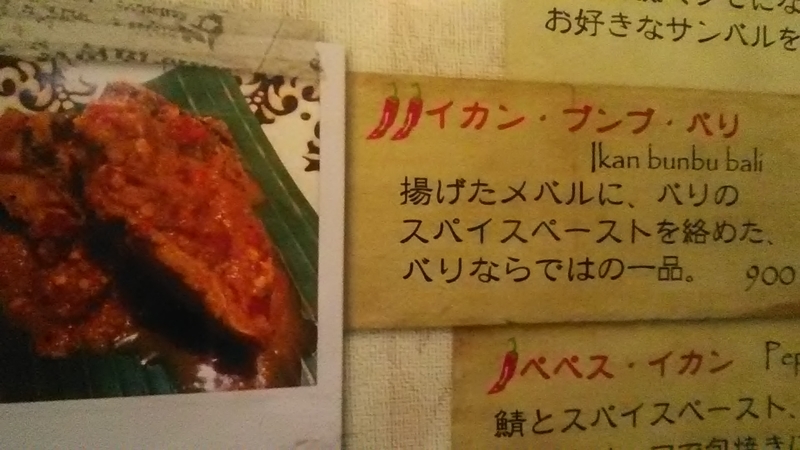 お好きなサンバルを
イカン・ブンブ・バリ
Ikan bunbu bali
揚げたメバルに、バリの
スパイスペーストを絡めた、
バリならではの一品。
900
ペペス・イカン Pep
鯖とスパイスペースト、